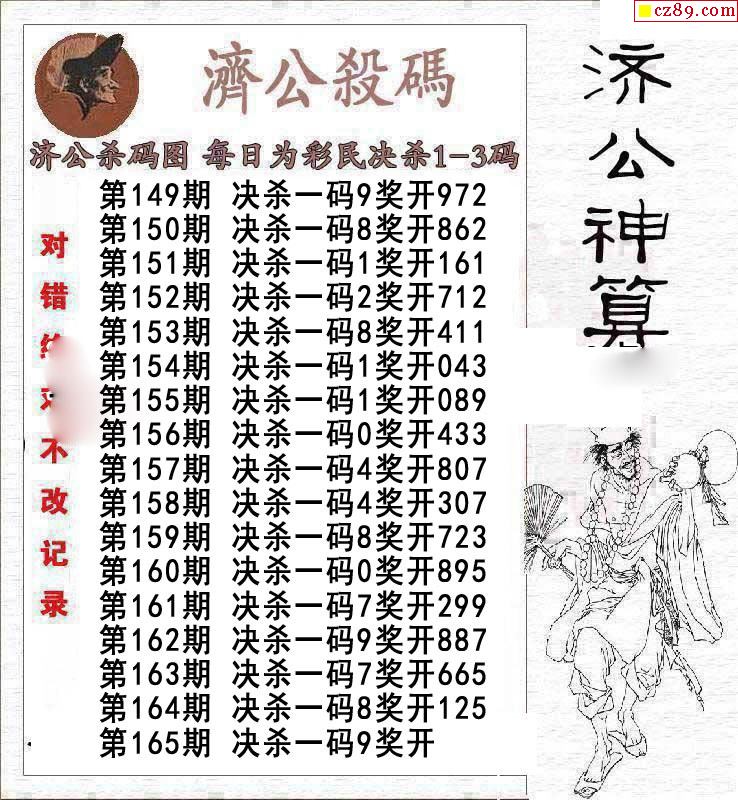 cz89.com
濟公殺碼
济公杀码图 每日为彩民决杀1-3码
第149期 决杀一码9奖开972
第150期 决杀一码8奖开862
第151期 决杀一码1奖开161
第152期 决杀一码2奖开712
第153期 决杀一码8奖开411
第154期 决杀一码1奖开043
第155期 决杀一码1奖开089
第156期 决杀一码0奖开433
第157期 决杀一码4奖开807
第158期 决杀一码4奖开307
第159期 决杀一码8奖开723
第160期 决杀一码0奖开895
第161期 决杀一码7奖开299
第162期 决杀一码9奖开887
第163期 决杀一码7奖开665
第164期 决杀一码8奖开125
第165期 决杀一码9奖开
对错绝对不改记录
济公神算